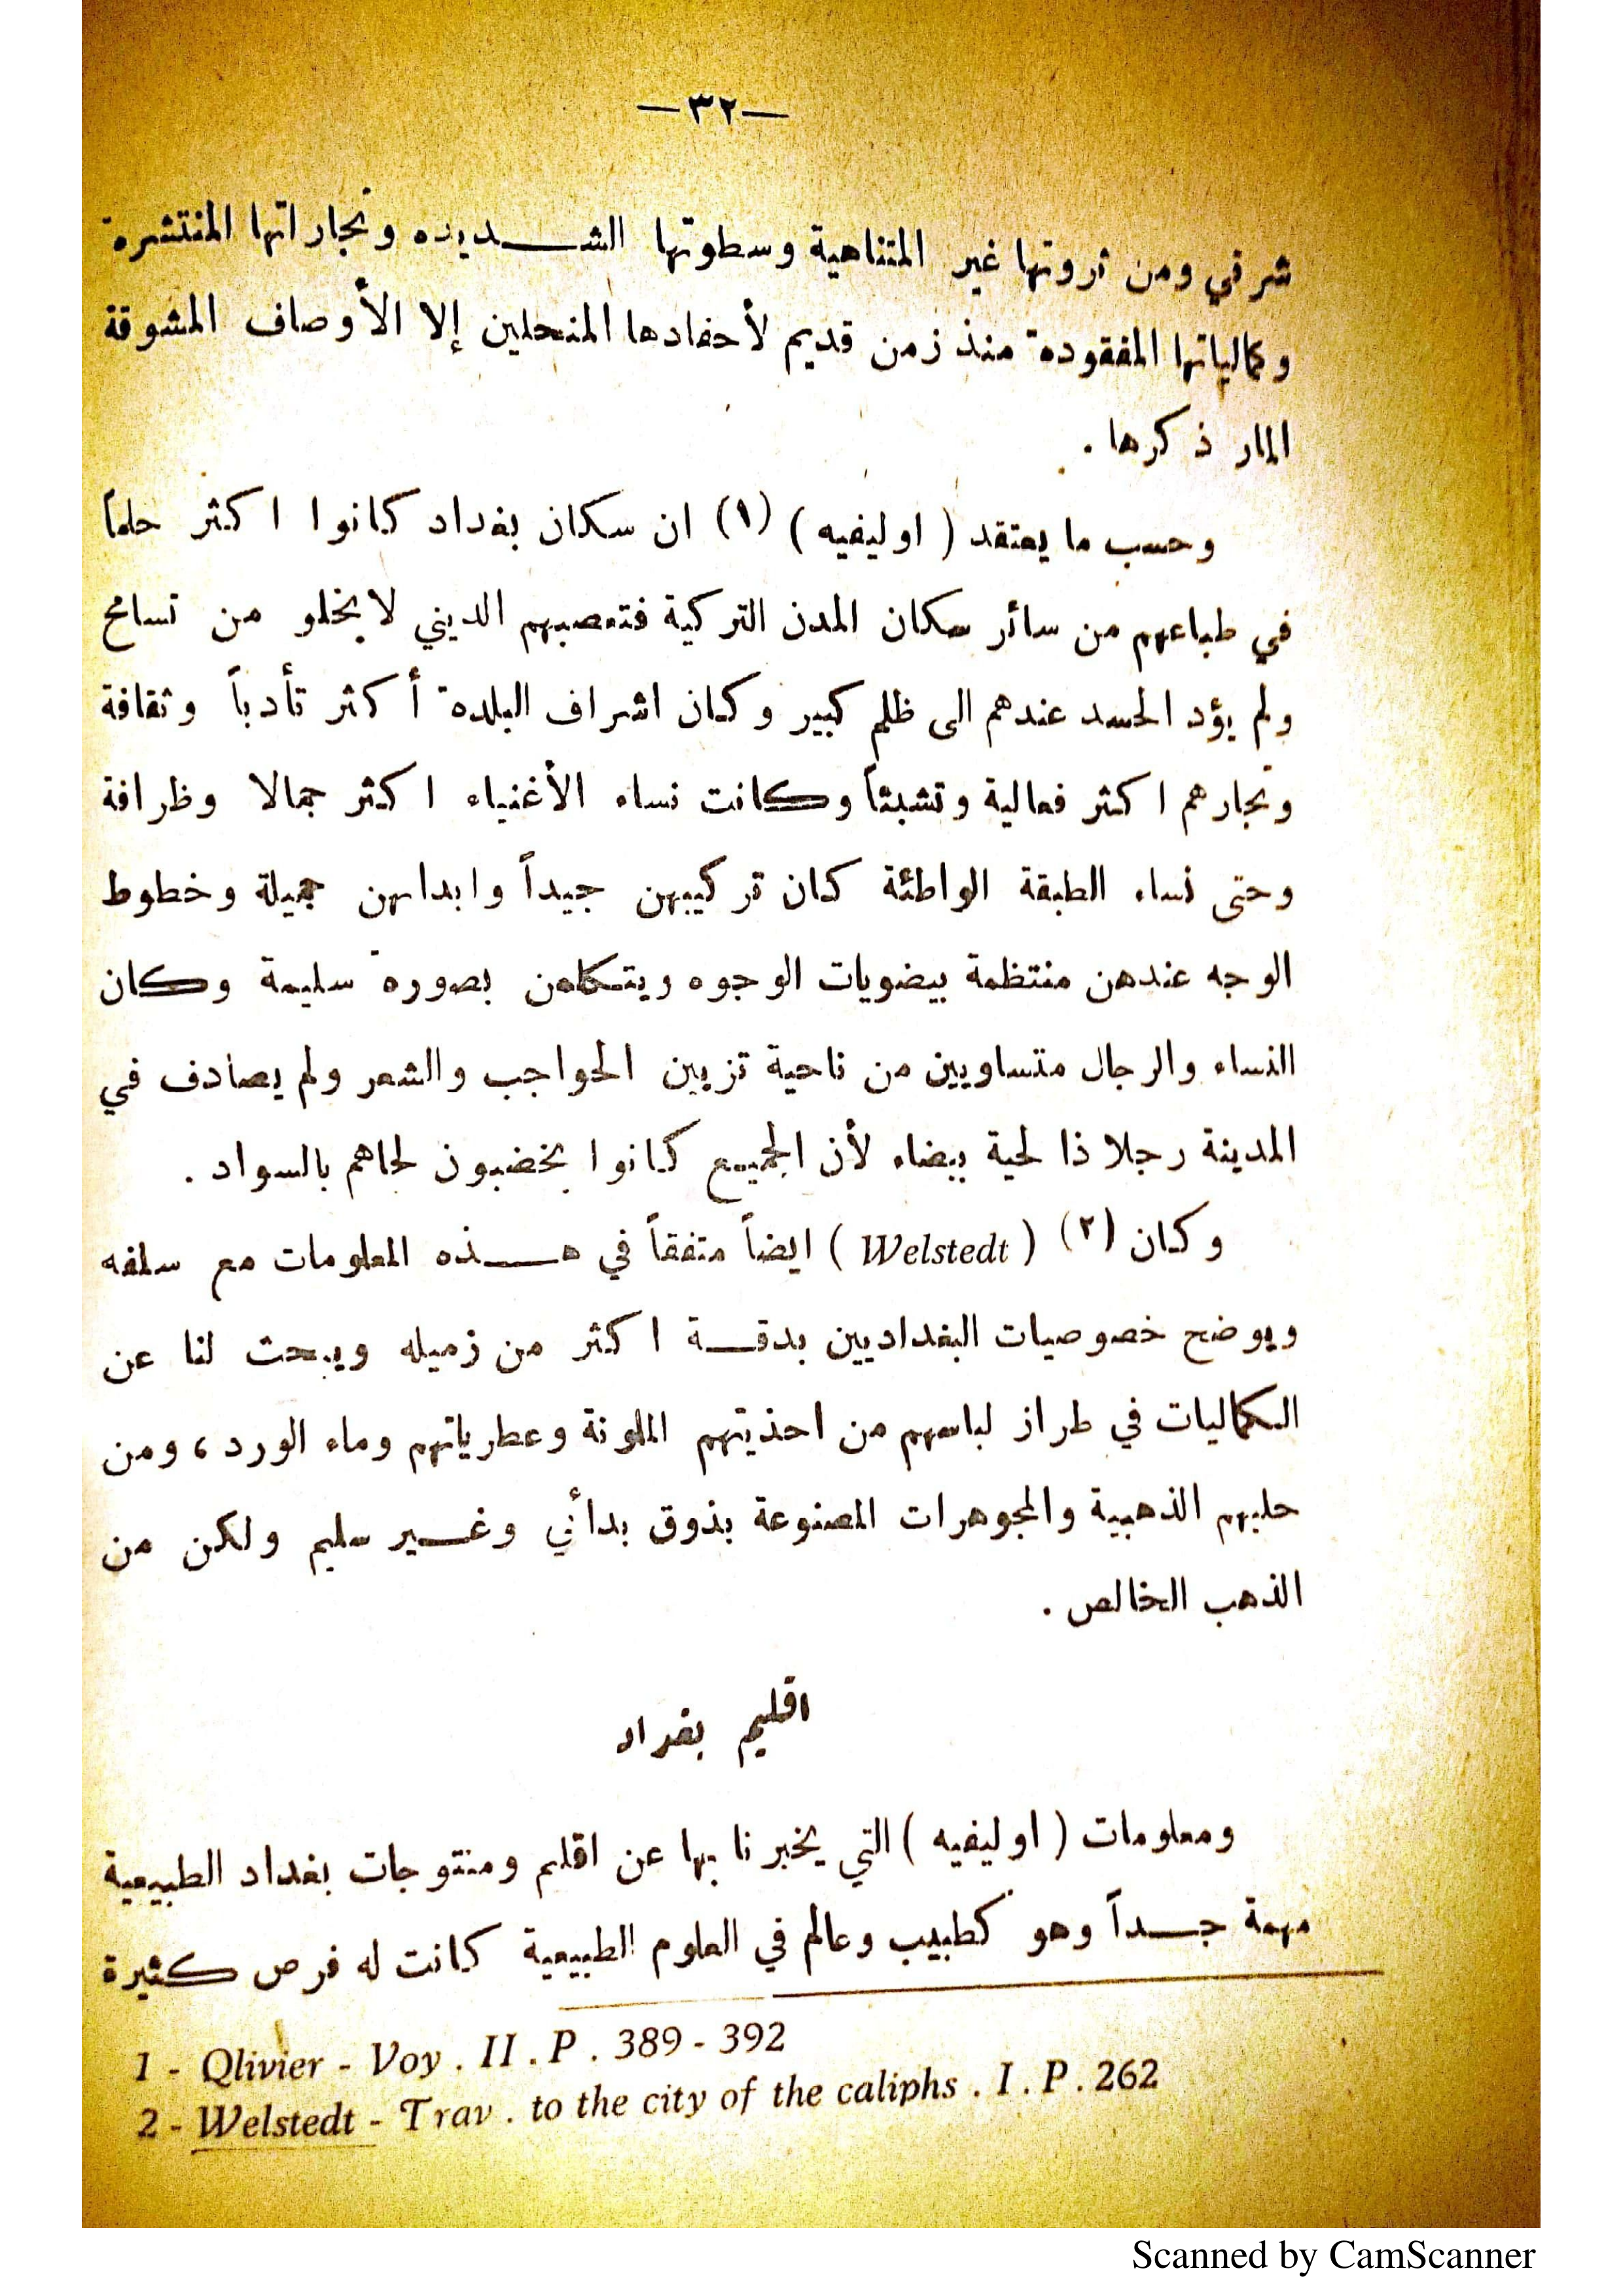 —٣٢—
شرقي ومن ثروتها غير المتناهية وسطوتها الشـــديده وتجاراتها المنتشرة
وكمالياتها المفقودة منذ زمن قديم لأحفادها المنحلين إلا الأوصاف المشوقة
المار ذكرها .
وحسب ما يعتقد ( اوليفيه ) (١) ان سكان بغداد كانوا اكثر حلماً
في طباعهم من سائر سكان المدن التركية فتعصبهم الديني لا يخلو من تسامح
ولم يؤد الحسد عندهم الى ظلم كبير وكان اشراف البلدة أكثر تأدباً وثقافة
وتجارهم اكثر فعالية وتشبثاً وكانت نساء الأغنياء اكثر جمالا وظرافة
وحتى نساء الطبقة الواطئة كان تركيبهن جيداً وابدانهن جميلة وخطوط
الوجه عندهن منتظمة بيضويات الوجوه ويتكلمن بصورة سليمة وكان
النساء والرجال متساويين من ناحية تزيين الحواجب والشعر ولم يصادف في
المدينة رجلا ذا لحية بيضاء لأن الجميع كانوا يخضبون لحاهم بالسواد .
وكان (٢) ( Welstedt ) ايضاً متفقاً في هـــذه المعلومات مع سلفه
ويوضح خصوصيات البغداديين بدقــة اكثر من زميله ويبحث لنا عن
الكماليات في طراز لباسهم من احذيتهم الملونة وعطرياتهم وماء الورد ، ومن
حليهم الذهبية والمجوهرات المصنوعة بذوق بدأئي وغــير سليم ولكن من
الذهب الخالص .
اقليم بغداد
ومعلومات ( اوليفيه ) التي يخبرنا بها عن اقليم ومنتوجات بغداد الطبيعية
مهمة جــداً وهو كطبيب وعالم في العلوم الطبيعية كانت له فرص كثيرة
1 - Qlivier - Voy . II . P . 389 - 392
2 - Welstedt - Trav . to the city of the caliphs . I . P . 262
Scanned by CamScanner